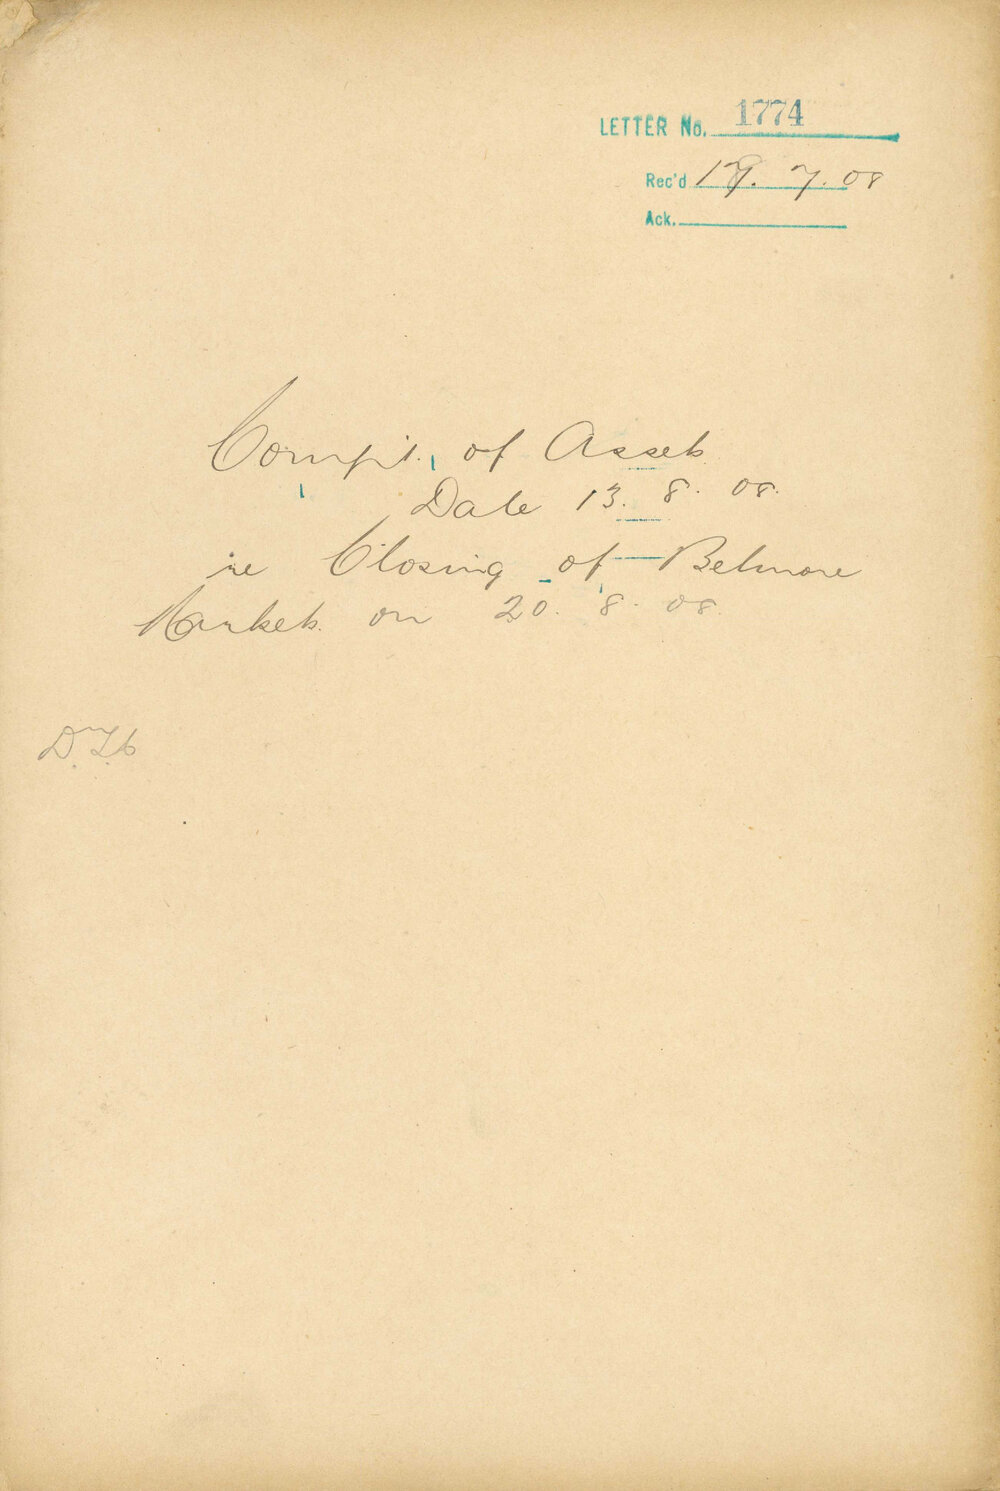 LETTER No. 1774
Rec'd 19. 7. 08
Ack.
Compt. of Assets
Date 13. 8. 08.
re Closing of Belmore
Markets on 20. 8. 08.